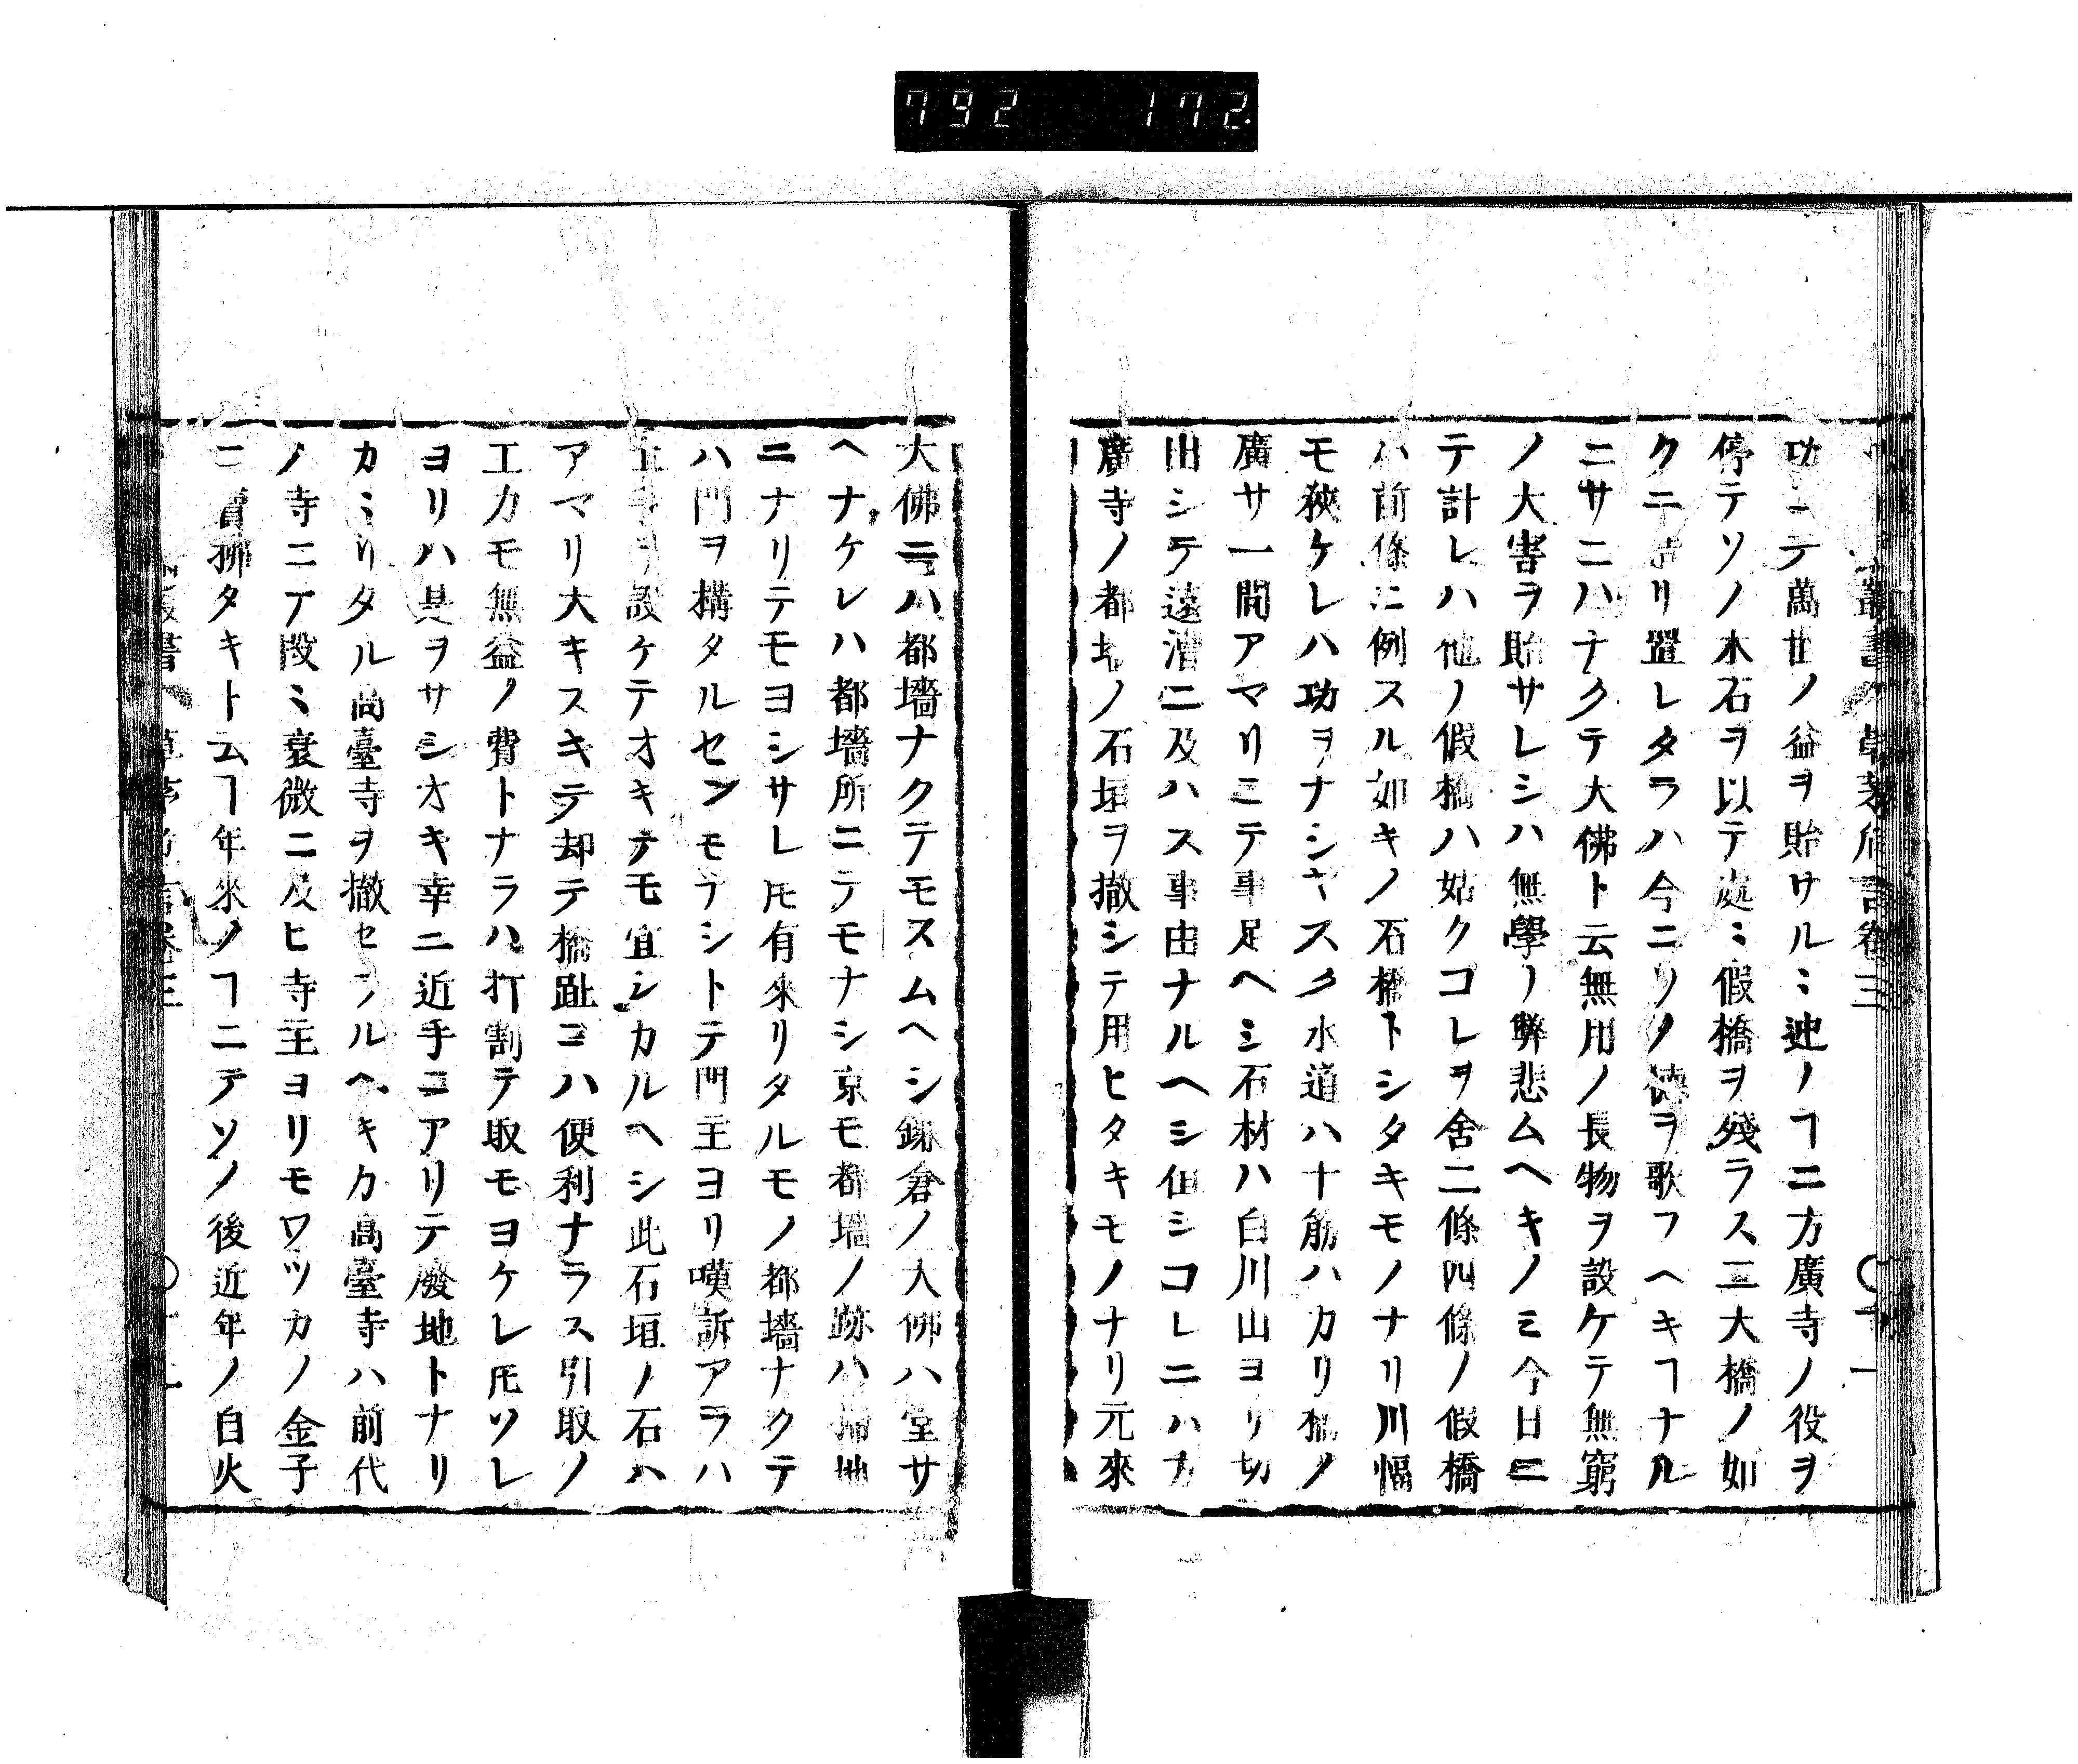 792 172.
功ニテ萬世ノ益ヲ貽サルミ迚ノヿニ方廣寺ノ役ヲ
停テソノ木石ヲ以テ處ミ假橋ヲ殘ラス三大橋ノ如
クニ造リ置レタラハ今ニソノ德ヲ歌フヘキヿナル
ニサニハナクテ大佛ト云無用ノ長物ヲ設ケテ無窮
ノ大害ヲ貽サレシハ無學ノ弊悲ムヘキノミ今日ニ
テ計レハ他ノ假橋ハ姑クコレヲ舍二條四條ノ假橋
ハ前條ニ例スル如キノ石橋トシタキモノナリ川幅
モ狹ケレハ功ヲナシヤスク水道ハ十筋ハカリ橋ノ
廣サ一間アマリニテ事足ヘシ石材ハ白川山ヨリ切
出シテ遠漕ニ及ハス事由ナルヘシ但シコレニハ方
廣寺ノ都墻ノ石垣ヲ撤シテ用ヒタキモノナリ元來
大佛ニハ都墻ナクテモスムヘシ鎌倉ノ大佛ハ堂サ
ヘナケレハ都墻所ニテモナシ京モ都墻ノ跡ハ荒地
ニナリテモヨシサレ𪜈有來リタルモノ都墻ナクテ
ハ門ヲ構タルセンモナシトテ門主ヨリ嘆訴アラハ
土手ヲ設ケテオキテモ宜シカルヘシ此石垣ノ石ハ
アマリ大キスキテ却テ橋趾ニハ便利ナラス引取ノ
工力モ無益ノ費トナラハ打割テ取モヨケレ𪜈ソレ
ヨリハ具ヲサシオキ幸ニ近手ニアリテ廢地トナリ
カミリタル高臺寺ヲ撤セラルヘキカ高臺寺ハ前代
ノ寺ニテ段ミ衰微ニ及ヒ寺主ヨリモワツカノ金子
ニ賣拂タキト云ヿ年來ノヿニテソノ後近年ノ自火